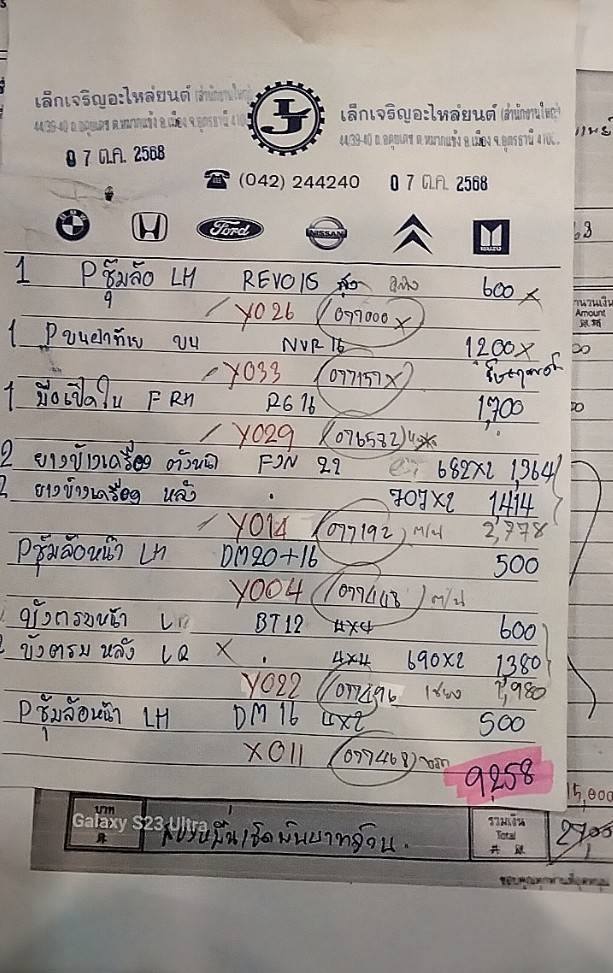 เล็กเจริญอะไหล่ยนต์ (สำนักงานใหญ่)
44/39-40 ถ.อดุยเดช ต.หมากแข้ง อ.เมือง จ.อุดรธานี 4100
0 7 ต.ค. 2568
LJ
เล็กเจริญอะไหล่ยนต์ (สำนักงานใหญ่)
44/39-40 ถ.อดุยเดช ต.หมากแข้ง อ.เมือง จ.อุดรธานี 4100
☎ (042) 244240 0 7 ต.ค. 2568
BMW
Ford
NISSAN
ISUZU
1 Pซุ้มล้อ LH REVO15 600 x
Y026 (077000 x
1 Pบนฝาท้าย บน NVR 16 1200 x
Y033 (077157 x
1 มือเปิดใน FRH RG 16 1,700
Y029 (076582)
2 ยางข้างเครื่อง FGN 22 682x2 1,364
2 ยางข้างเครื่อง หลัง . 707x2 1,414
Y014 (077192) ท/น 2,778
Pซุ้มล้อหน้า LH DM20+16 500
Y004 (077448) ท/น
บังตรมหน้า BT12 4x4 600
บังตรม หลัง LR X . 4x4 690x2 1,380
Y022 (077496 1,980
Pซุ้มล้อหน้า LH DM 16 4x2 500
X011 (077468)
9,258
จำนวนเงิน
Amount
15,000
บาท
Galaxy S23 Ultra
สองหมื่นเจ็ดพันบาทถ้วน.
รวมเงิน
Total